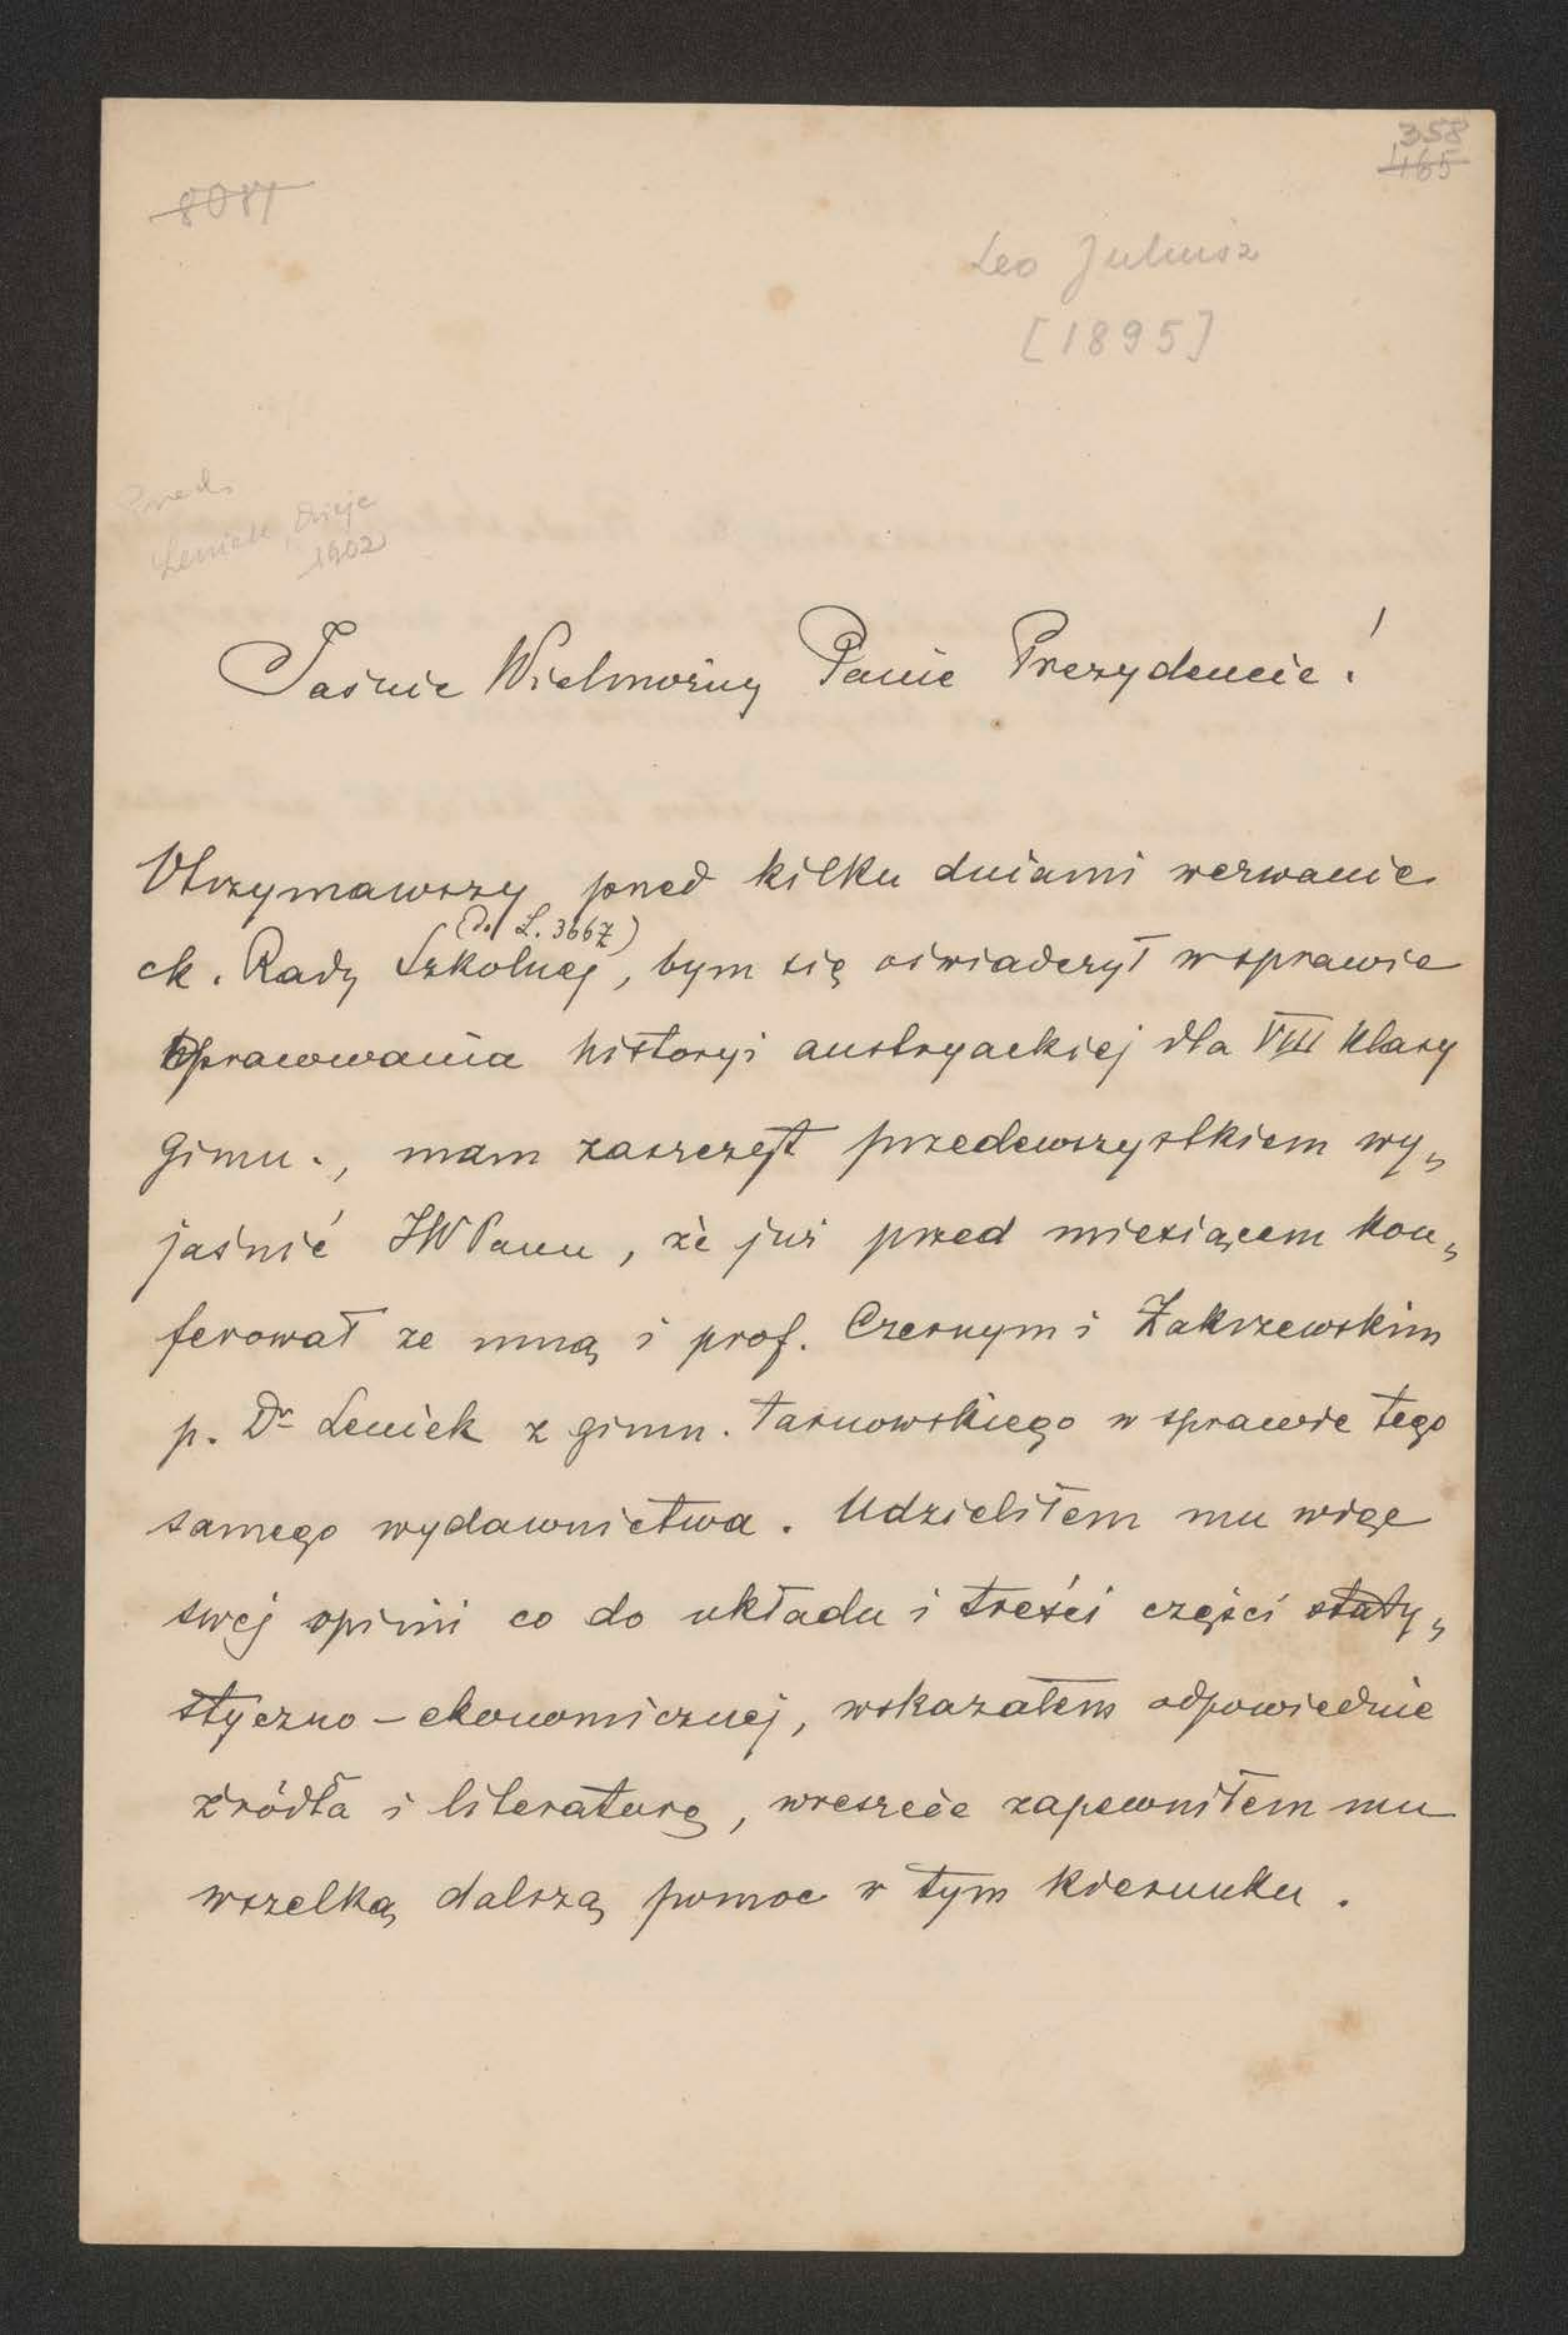 358
465
8081
Leo Juliusz
[1895]
Leniek, Dzieje
1902
Jaśnie Wielmożny Panie Prezydencie!
Otrzymawszy przed kilku dniami wezwanie
(do L. 3667)
ck. Rady Szkolnej, bym się oświadczył w sprawie
opracowania historyi austryackiej dla VIII klasy
gimn., mam zaszczyt przedewszystkiem wy„
jaśnić JWPanu, że już przed miesiącem kon„
ferował ze mną i prof. Czernym i Zakrzewskim
p. Dr Leniek z gimn. tarnowskiego w sprawie tego
samego wydawnictwa. Udzieliłem mu więc
swej opinii co do układu i treści części staty„
styczno-ekonomicznej, wskazałem odpowiednie
źródła i literaturę, wreszcie zapewniłem mu
wszelką dalszą pomoc w tym kierunku.